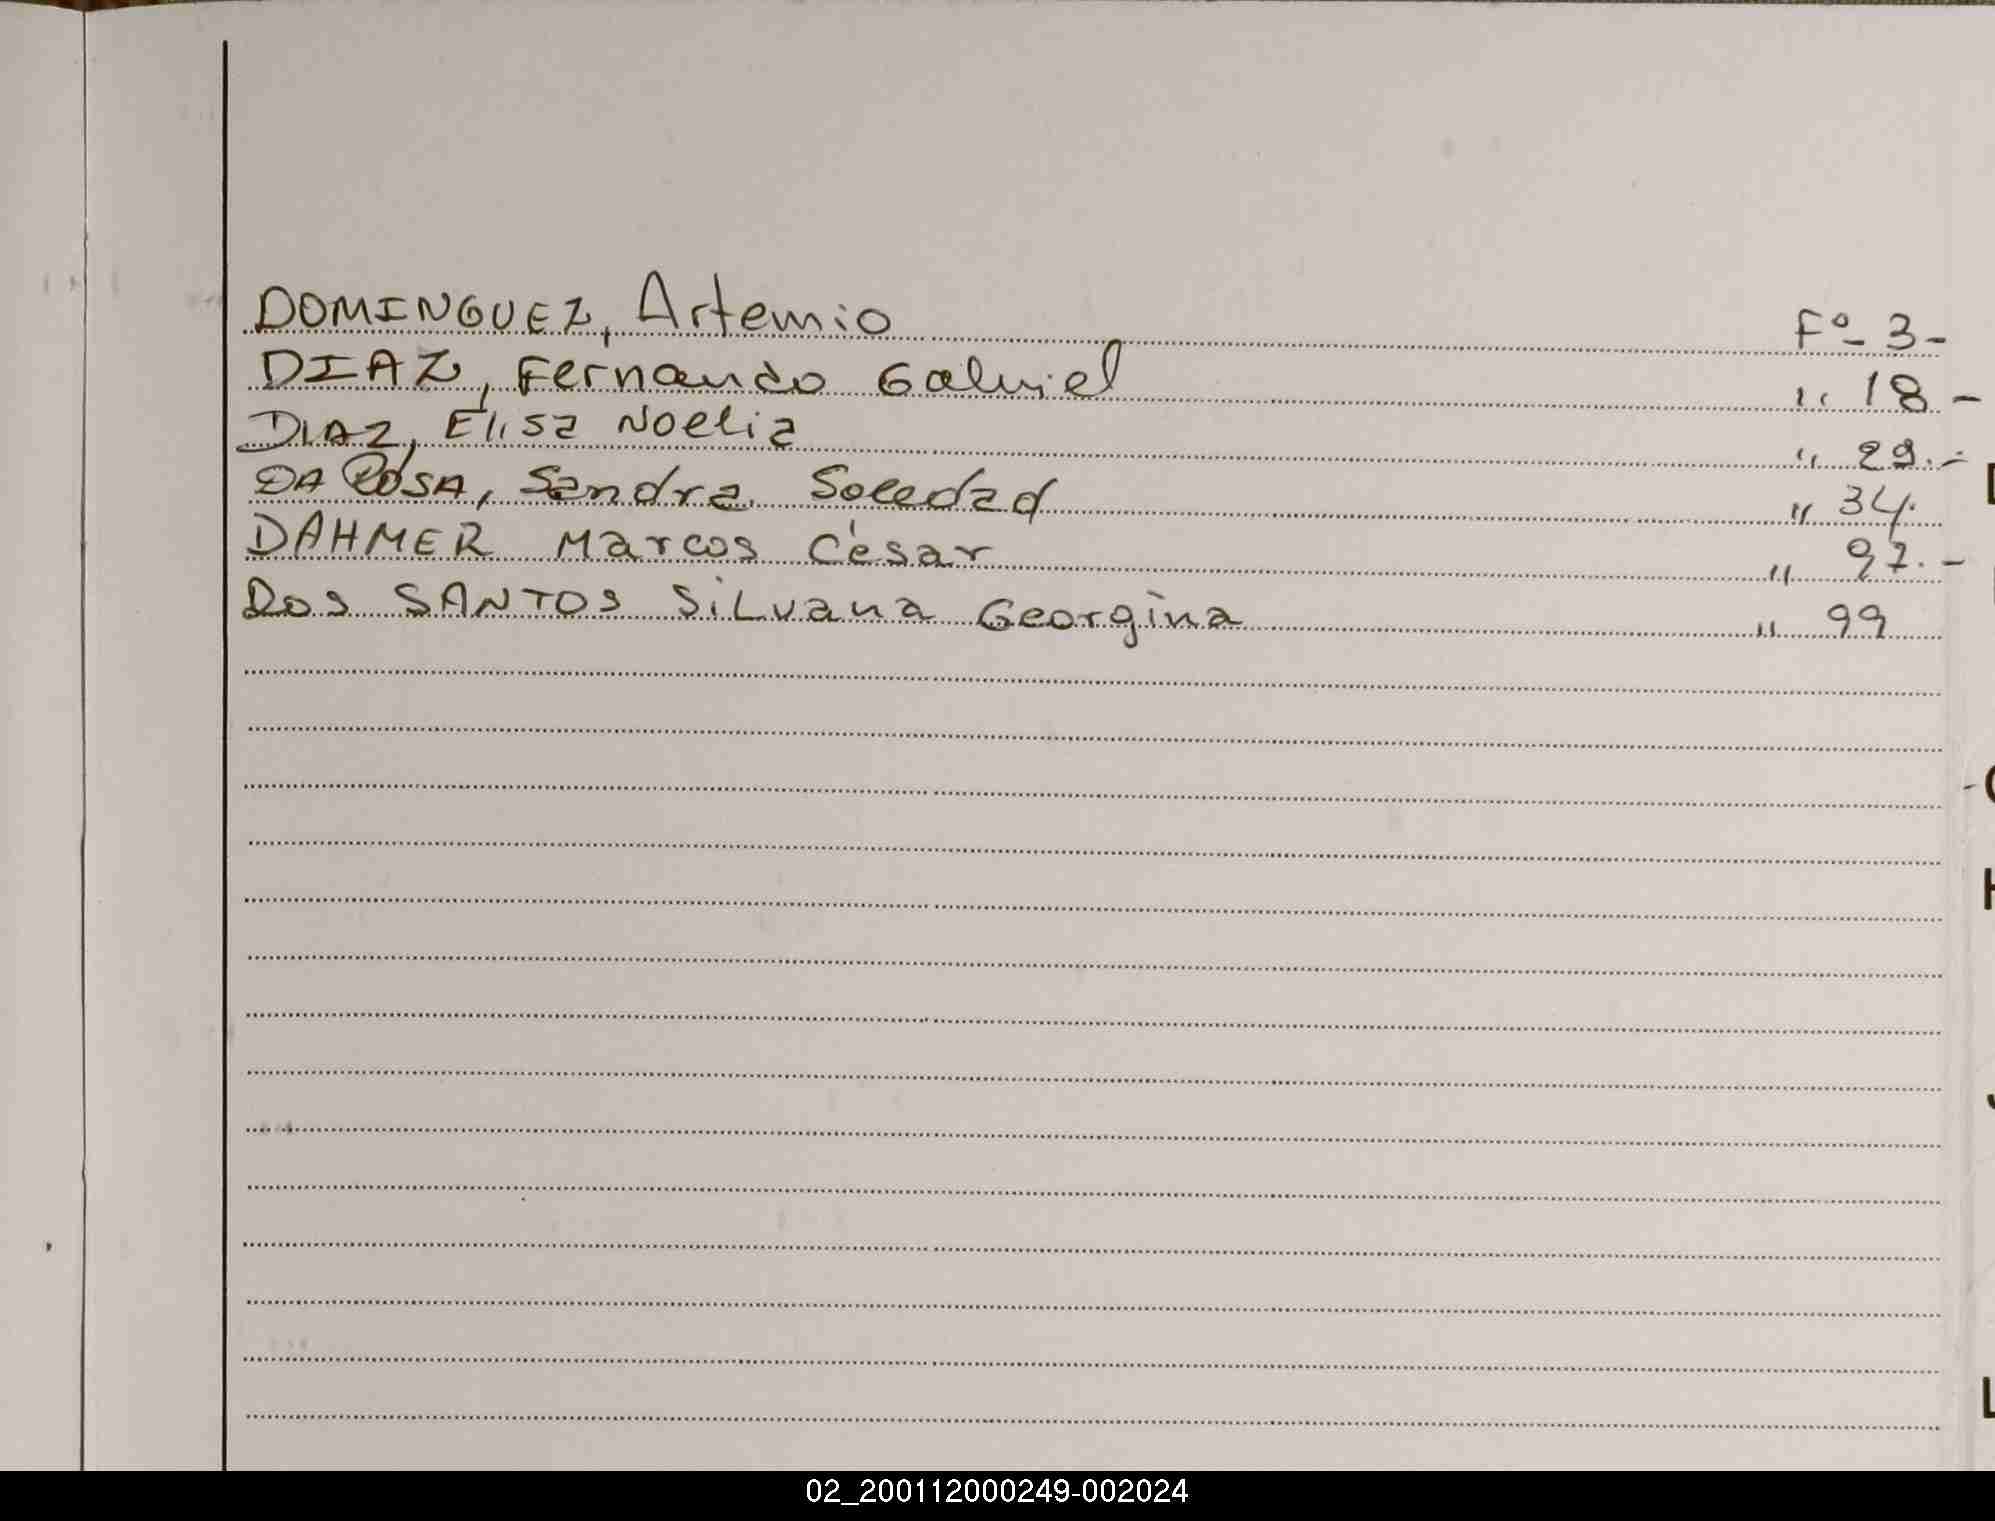 DOMINGUEZ, Artemio Fº- 3-
DIAZ, Fernando Gabriel " 18 -
DIAZ, Elisa Noelia " 29.-
DA ROSA, Sandra Soledad " 34.
DAHMER Marcos César " 97.-
Dos SANTOS Silvana Georgina " 99
02_200112000249-002024